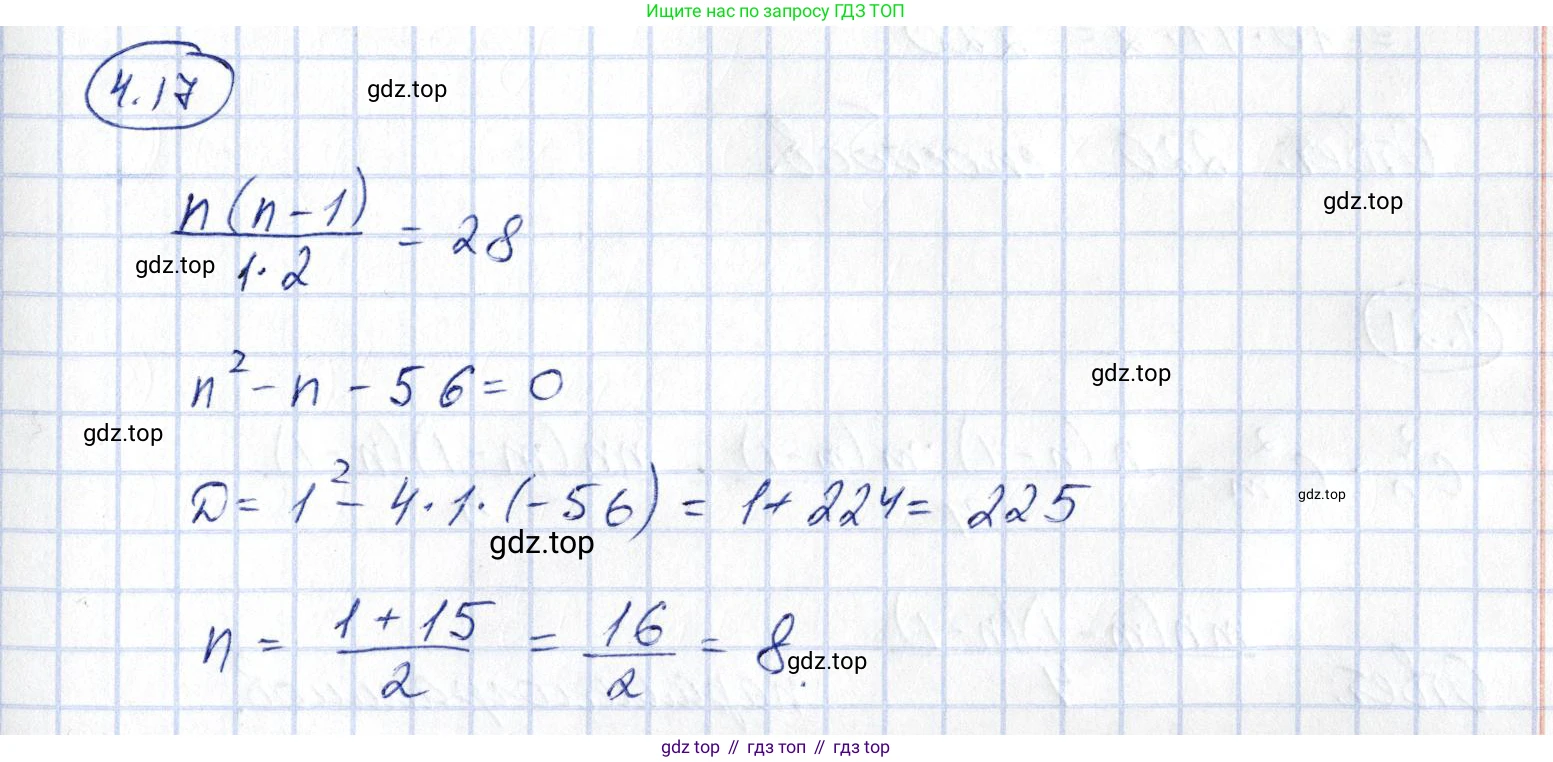 Ищите нас по запросу ГДЗ ТОП
4.17
gdz.top
n(n-1)/1·2 = 28
gdz.top
gdz.top
n² - n - 56 = 0
gdz.top
gdz.top
D = 1² - 4·1·(-56) = 1 + 224 = 225
gdz.top
gdz.top
n = 1+15/2 = 16/2 = 8.
gdz.top
gdz top // гдз топ // гдз top